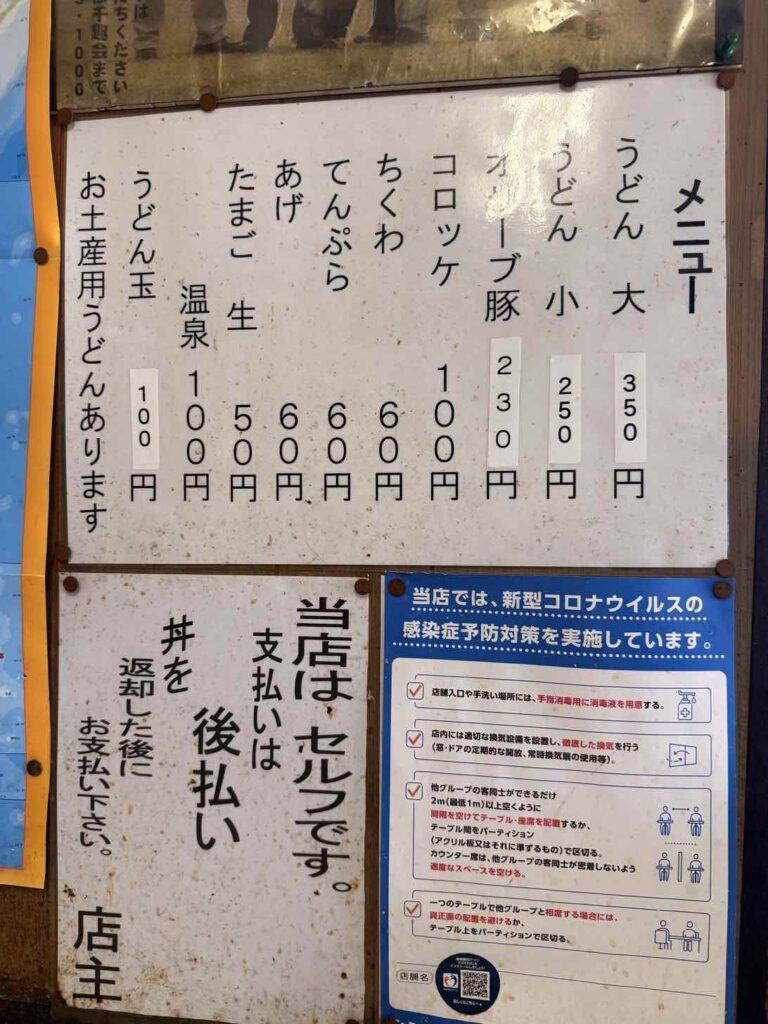 ください
会まで
・1000
メニュー
うどん 大 350円
うどん 小 250円
オリーブ豚 230円
コロッケ 100円
ちくわ 60円
てんぷら 60円
あげ 60円
たまご 生 50円
温泉 100円
うどん玉 100円
お土産用うどんあります
当店は セルフです。
支払いは
後払い
丼を
返却した後に
お支払い下さい。
店主
当店では、新型コロナウイルスの
感染症予防対策を実施しています。
店舗入口や手洗い場所には、手指消毒用に消毒液を用意する。
店内には適切な換気設備を設置し、徹底した換気を行う
(窓・ドアの定期的な開放、常時換気扇の使用等)。
他グループの客同士ができるだけ
2m(最低1m)以上空くように
間隔を空けてテーブル・座席を配置するか、
テーブル間をパーティション
(アクリル板又はそれに準ずるもの)で区切る。
カウンター席は、他グループの客同士が密着しないよう
適度なスペースを空ける。
一つのテーブルで他グループと相席する場合には、
真正面の配置を避けるか、
テーブル上をパーティションで区切る。
店舗名